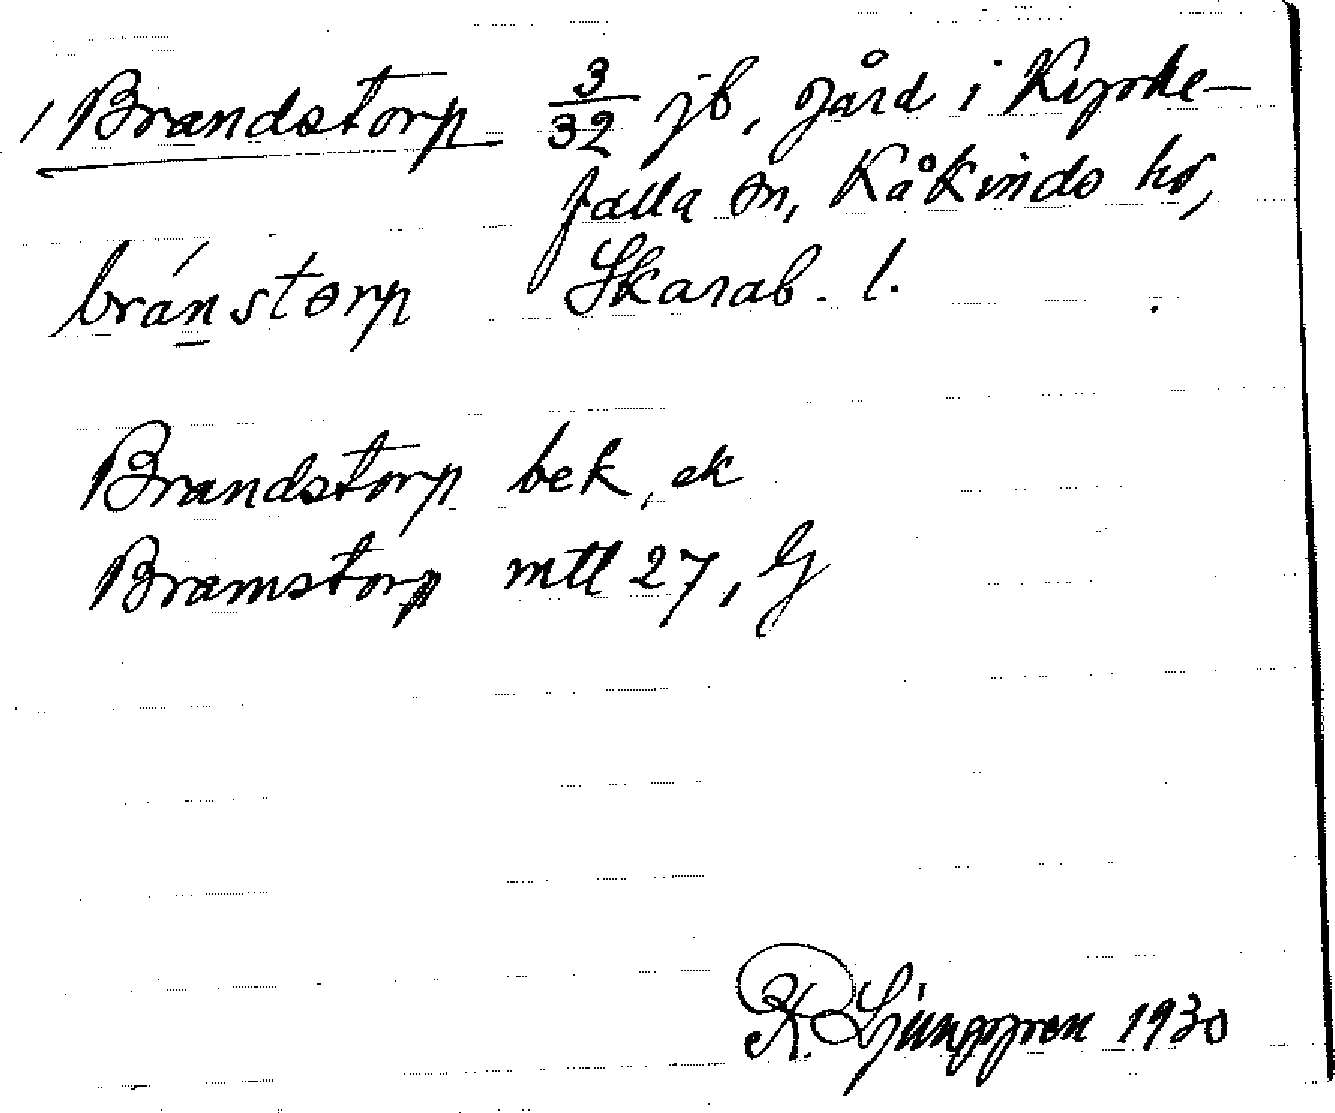 Brandstorp 3/32 jb, gård i Kyrke-
falla sn, Kåkinds hd,
bránstorp Skarab. l.
Brandstorp bek, ek
Bramstorp mtl 27, G
R. Ljunggren 1930